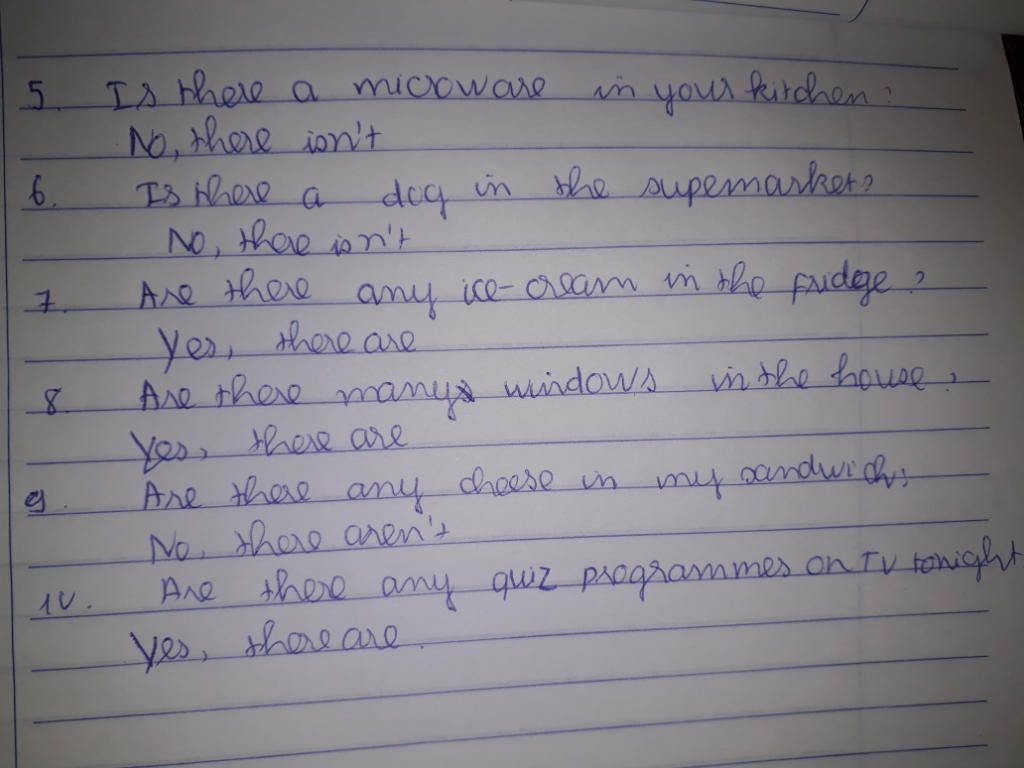 5. Is there a microware in your kirchen?
No, there isn't
6. Is there a dog in the supemarket?
No, there isn't
7. Are there any ice-cream in the fridge?
Yes, there are
8. Are there many windows in the house?
Yes, there are
9. Are there any cheese in my sandwich?
No, there aren't
10. Are there any quiz programmes on TV tonight
Yes, there are.